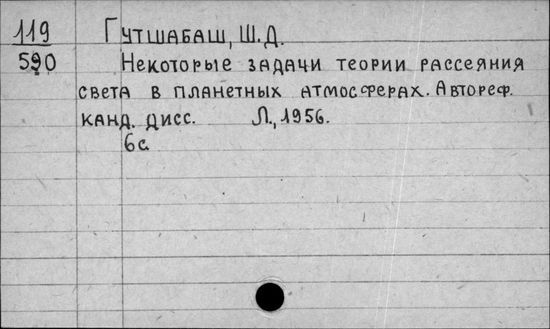 119 Гутшабаш, Ш.Д.
590 Некоторые задачи теории рассеяния
света в планетных атмосферах. Автореф.
канд. дисс. Л., 1956.
6с.